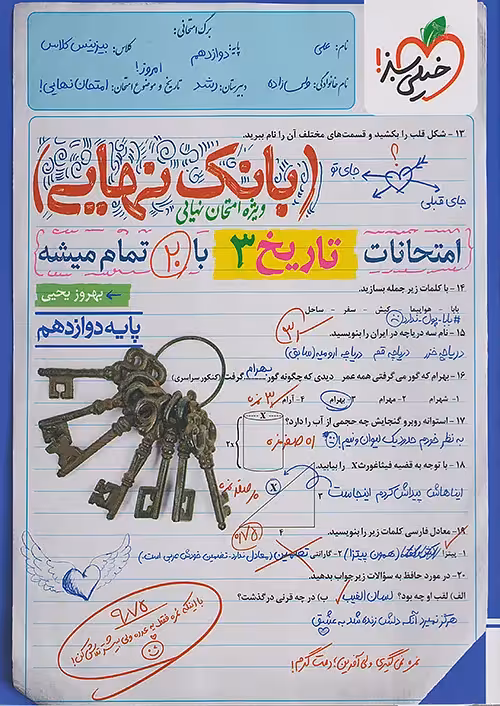 برگ امتحانی:
نام: علی
پایه: دوازدهم
کلاس: بیزینس کلاس
امروز!
نام خانوادگی:
دبیرستان: رشد
تاریخ و موضوع امتحان: امتحان نهایی!
خیلی سبز!
۱۳ - شکل قلب را بکشید و قسمت‌های مختلف آن را نام ببرید.
؟
جای تو
جای قبلی
(بانک نهایی)
ویژه امتحان نهایی
امتحانات تاریخ ۳ با ۲۰ تمام میشه
۱۴ - با کلمات زیر جمله بسازید.
بابا - هواپیما - کیش - سفر - ساحل
#بابا_پول_نداره
بهروز یحیی
پایه دوازدهم
۱۵ - نام سه دریاچه در ایران را بنویسید.
دریاچه خزر دریاچه قم دریاچه ارومیه (سابق)
۱۶ - بهرام که گور می‌گرفتی همه عمر دیدی که چگونه گور بهرام گرفت (کنکور سراسری)
۱ - شهرام ۲ - مهرام ۳ - بهرام ۴ - آرام
۱۷ - استوانه روبرو گنجایش چه حجمی از آب را دارد؟
به نظر خودم حدود یک لیوان و نیم!
X
۲x
۱۸ - با توجه به قضیه فیثاغورث X را بیابید.
ایناهاش پیداش کردم اینجاست
X
۳
۴
۱۹ - معادل فارسی کلمات زیر را بنویسید.
۱ - پیتزا (همون پیتزا) ۲ - گارانتی تضمین (معادل ندارد. تضمین خودش عربی است.)
۲۰ - در مورد حافظ به سؤالات زیر جواب بدهید.
الف) لقب او چه بود؟ لسان الغیب ب) در چه قرنی درگذشت؟
هرگز نمیرد آنکه دلش زنده شد به عشق
۹/۷۵
نمره نمی‌گیری ولی آفرین! دمت گرم!